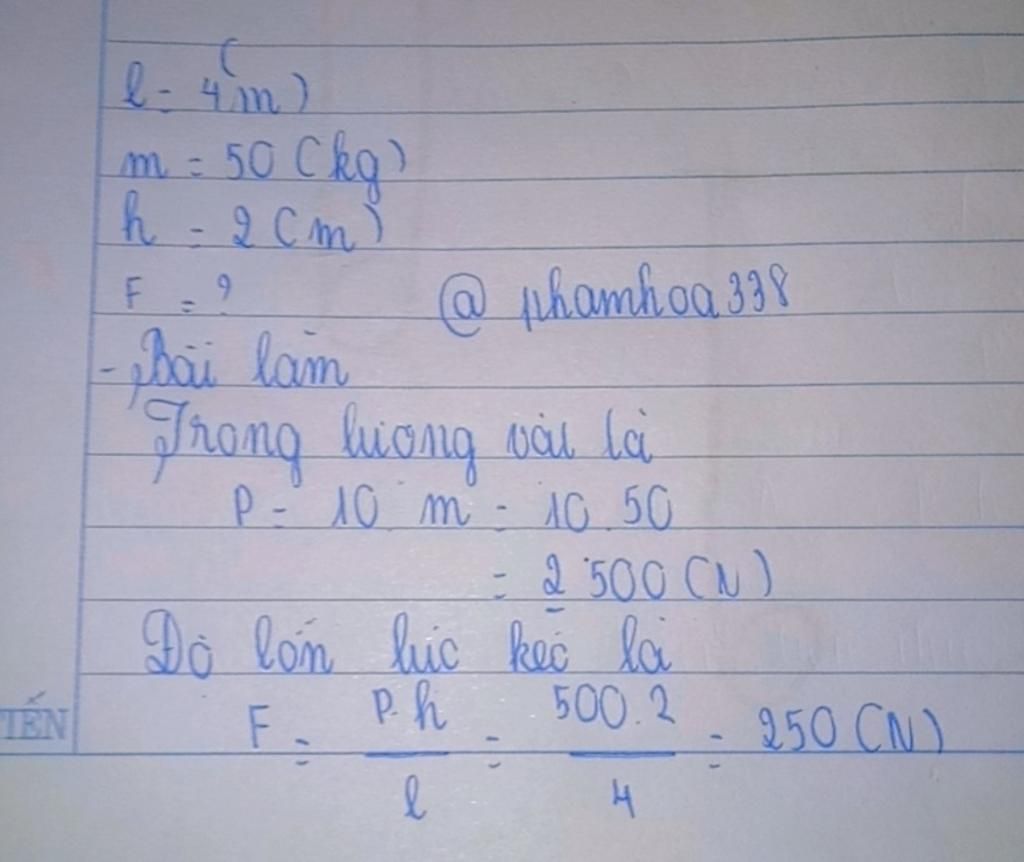 l = 4(m)
m = 50 (kg)
h = 2 (m)
F = ?
@ phamhoa338
- Bài làm
Trọng lượng vật là
P = 10 m = 10.50
= 2 500 (N)
Độ lớn lực kéo là
F = P.h / l = 500.2 / 4 = 250 (N)
TẾN